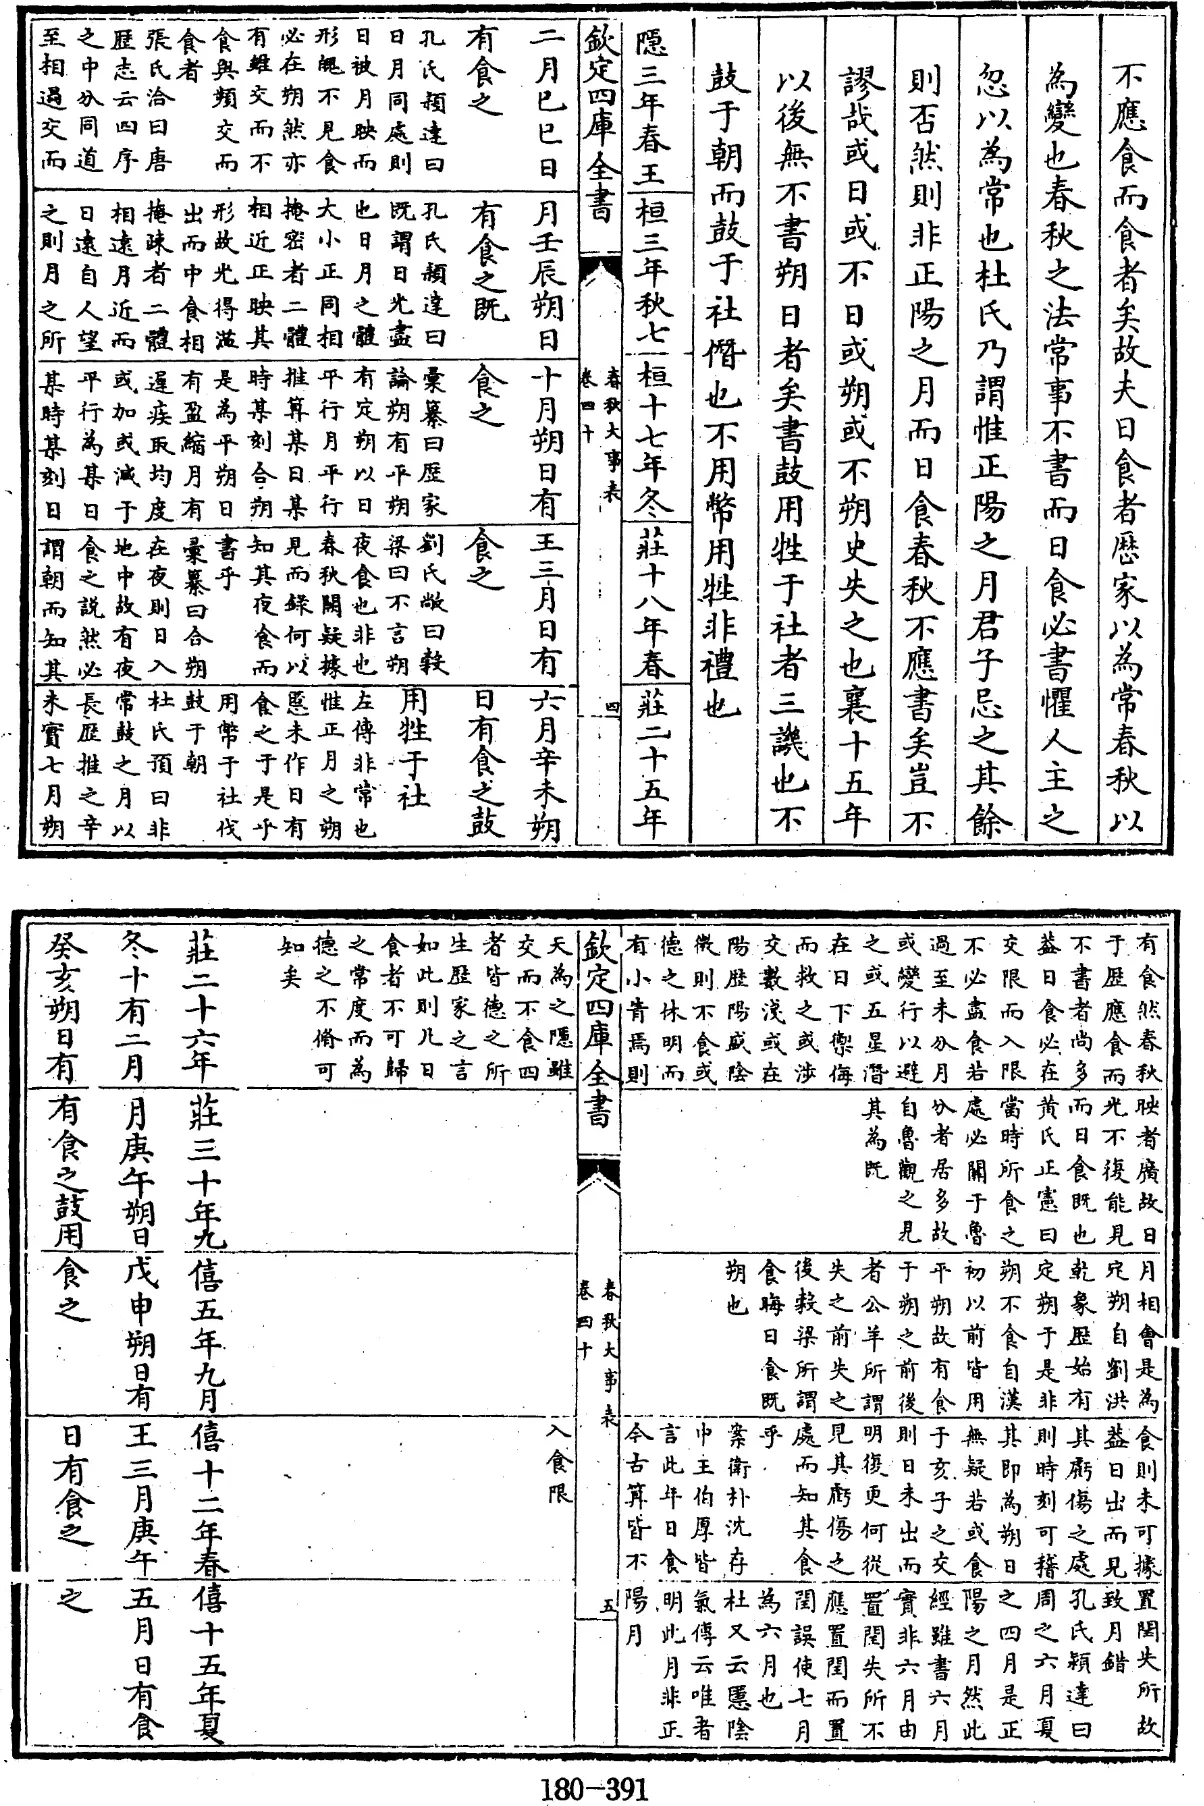 不應食而食者矣故夫日食者歷家以為常春秋以
為變也春秋之法常事不書而日食必書懼人主之
忽以為常也杜氏乃謂惟正陽之月君子忌之其餘
則否然則非正陽之月而日食春秋不應書矣豈不
謬哉或日或不日或朔或不朔史失之也襄十五年
以後無不書朔日者矣書鼓用牲于社者三譏也不
鼓于朝而鼓于社僭也不用幣用牲非禮也
隱三年春王
二月己巳日
有食之
孔氏頴達曰
日月同處則
日被月映而
形魄不見食
必在朔然亦
有雖交而不
食與頻交而
食者
張氏洽曰唐
歷志云四序
之中分同道
至相過交而
桓三年秋七
月壬辰朔日
有食之既
孔氏頴達曰
既謂日光盡
也日月之體
大小正同相
掩密者二體
相近正映其
形故光得溢
出而中食相
掩疎者二體
相遠月近而
日遠自人望
之則月之所
桓十七年冬
十月朔日有
食之
彙纂曰歷家
論朔有平朔
有定朔以日
平行月平行
推算某日某
時某刻合朔
是為平朔日
有盈縮月有
遲疾取均度
或加或減于
平行為某日
某時某刻日
莊十八年春
王三月日有
食之
劉氏敞曰穀
梁曰不言朔
夜食也非也
春秋闕疑據
見而錄何以
知其夜食而
書乎
彙纂曰合朔
在夜則日入
地中故有夜
食之說然必
謂朝而知其
莊二十五年
六月辛未朔
日有食之鼓
用牲于社
左傳非常也
惟正月之朔
慝未作日有
食之于是乎
用幣于社伐
鼓于朝
杜氏預曰非
常鼓之月以
長歷推之辛
未實七月朔
欽定四庫全書
春秋大事表
卷四十
四
有食然春秋
于歷應食而
不書者尚多
蓋日食必在
交限而入限
不必盡食若
過至未分月
或變行以避
之或五星潛
在日下禦侮
而救之或涉
交數淺或在
陽歷陽盛陰
微則不食或
德之休明而
有小眚焉則
天為之隱雖
交而不食四
者皆德之所
生歷家之言
如此則凡日
食者不可歸
之常度而為
德之不脩可
知矣
映者廣故日
光不復能見
而日食既也
黃氏正憲曰
當時所食之
處必關于魯
分者居多故
自魯觀之見
其為既
月相會是為
定朔自劉洪
乾象歷始有
定朔于是非
朔不食自漢
初以前皆用
平朔故有食
于朔之前後
者公羊所謂
失之前失之
後穀梁所謂
食晦日食既
朔也
食則未可據
蓋日出而見
其虧傷之處
則時刻可稽
其即為朔日
無疑若或食
于亥子之交
則日未出而
明復更何從
見其虧傷之
處而知其食
乎
案衛朴沈存
中王伯厚皆
言此年日食
今古算皆不
入食限
置閏失所故
致月錯
孔氏穎達曰
周之六月夏
之四月是正
陽之月然此
經雖書六月
實非六月由
置閏失所不
應置閏而置
閏誤使七月
為六月也
杜又云慝陰
氣傳云唯者
明此月非正
陽月
欽定四庫全書
春秋大事表
卷四十
五
莊二十六年
冬十有二月
癸亥朔日有
食之
莊三十年九
月庚午朔日
有食之鼓用
僖五年九月
戊申朔日有
食之
僖十二年春
王三月庚午
日有食之
僖十五年夏
五月日有食
之
180-391